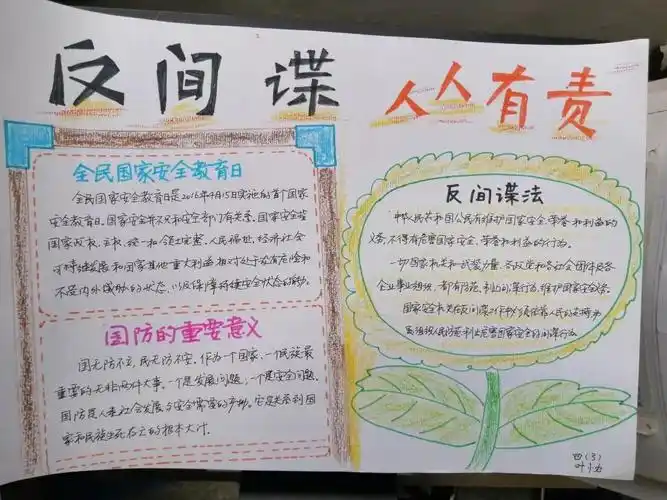 反间谍 人人有责
全民国家安全教育日
全民国家安全教育日是2016年4月15日实施的首个国家
安全教育日。国家安全不仅和安全部门有关系。国家安全是
国家政权、主权、统一和领土完整、人民福祉、经济社会
可持续发展和国家其他重大利益相对处于没有危险和
不受内外威胁的状态，以及保障持续安全状态的能力。
国防的重要意义
国无防不立，民无防不安，作为一个国家、一个民族最
重要的无非两件大事，一个是发展问题，一个是安全问题。
国防是人类社会发展与安全需要的产物。它是关系到国
家和民族生死存亡的根本大计。
反间谍法
中华人民共和国公民有维护国家安全、荣誉和利益的
义务，不得有危害国家安全、荣誉和利益的行为。
一切国家机关和武装力量、各政党和各社会团体及各
企业事业组织，都有防范、制止间谍行为，维护国家安全义务。
国家安全机关在反间谍工作中必须依靠人民的支持，
组织人民防范制止危害国家安全的间谍行为
四（3）